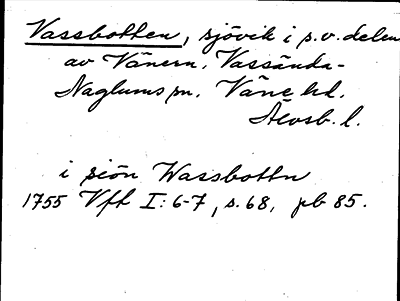 Vassbotten, sjövik i s.v. delen
av Vänern. Vassända-
Naglums sn. Väne hd.
Älvsb. l.
i siön Wassbottn
1755 Vfh I: 6-7, s. 68, pb 85.